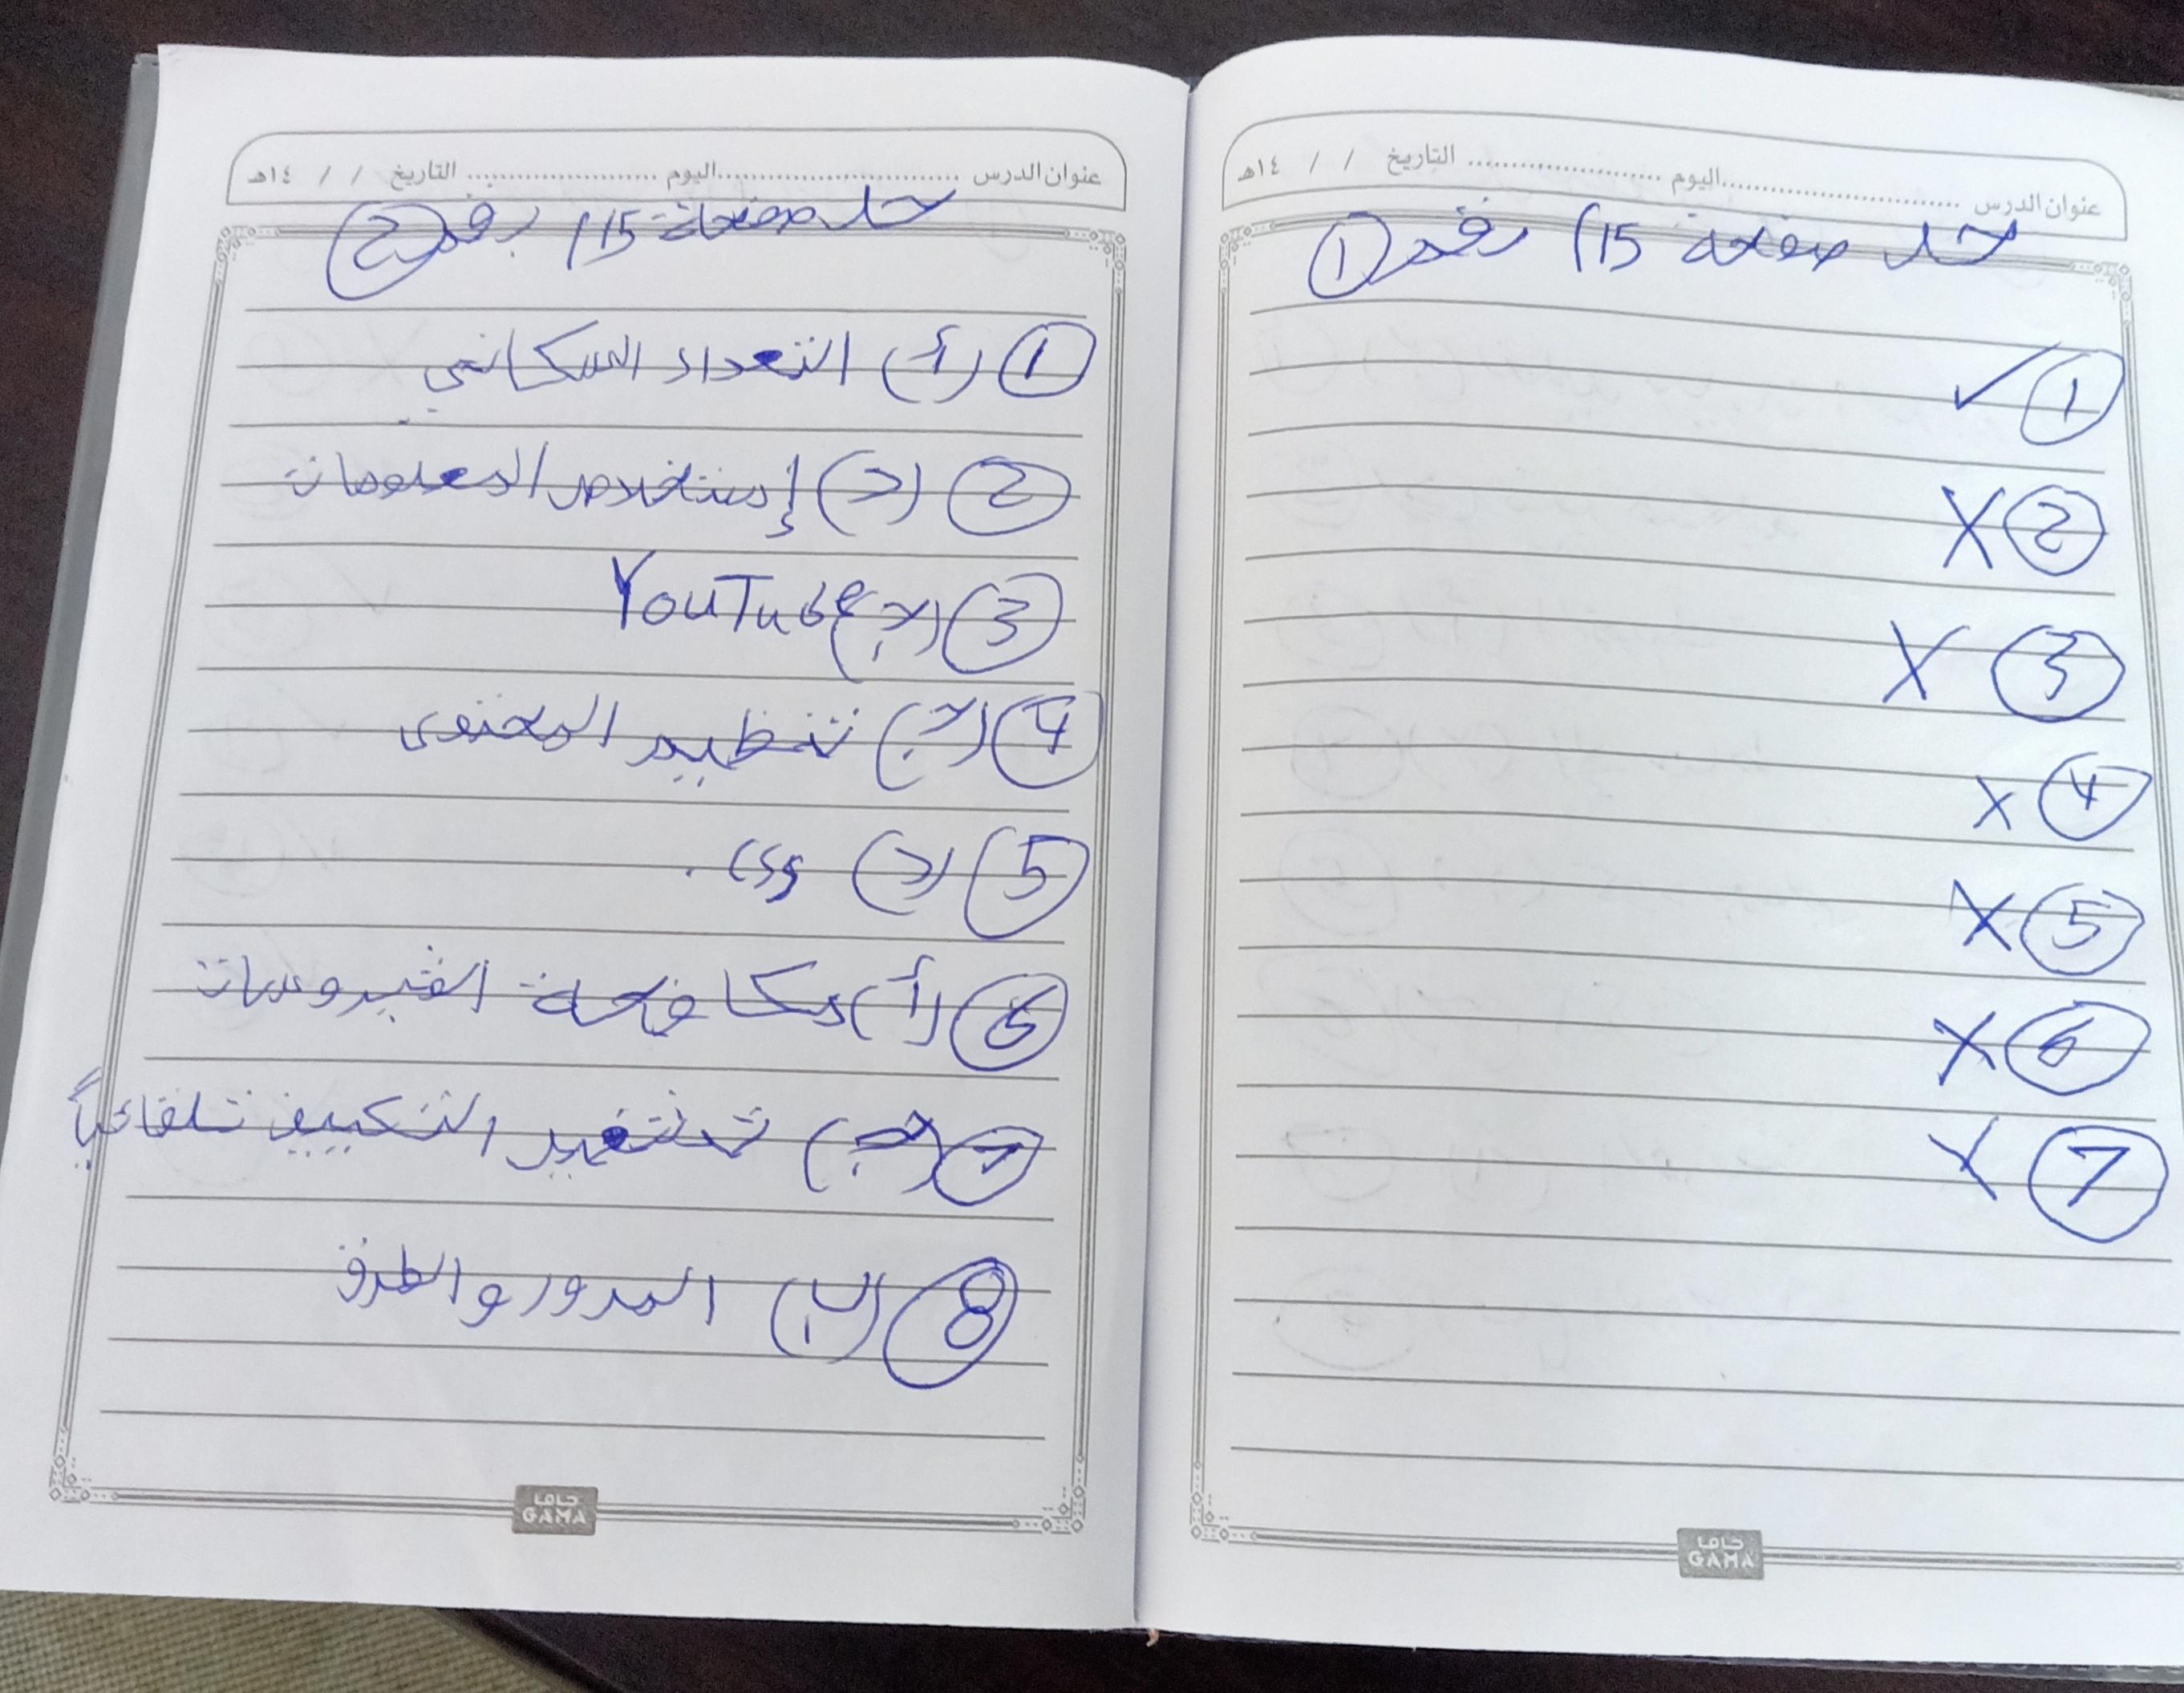 عنوان الدرس ........ اليوم ........ التاريخ / / ١٤هـ
حل صفحة 115 رقم ①
① ✓
② X
③ X
④ X
⑤ X
⑥ X
⑦ X
جاما
GAMA
عنوان الدرس ........ اليوم ........ التاريخ / / ١٤هـ
حل صفحة 115 رقم ②
① (أ) التعداد السكاني
② (د) إستخلاص المعلومات
③ (ج) YouTube
④ (ج) تنظيم المحتوى
⑤ (د)
⑥ (أ) مكافحة الفيروسات
⑦ (ج) التكييف تلقائياً
⑧ (ب) المرور والطرق
جاما
GAMA